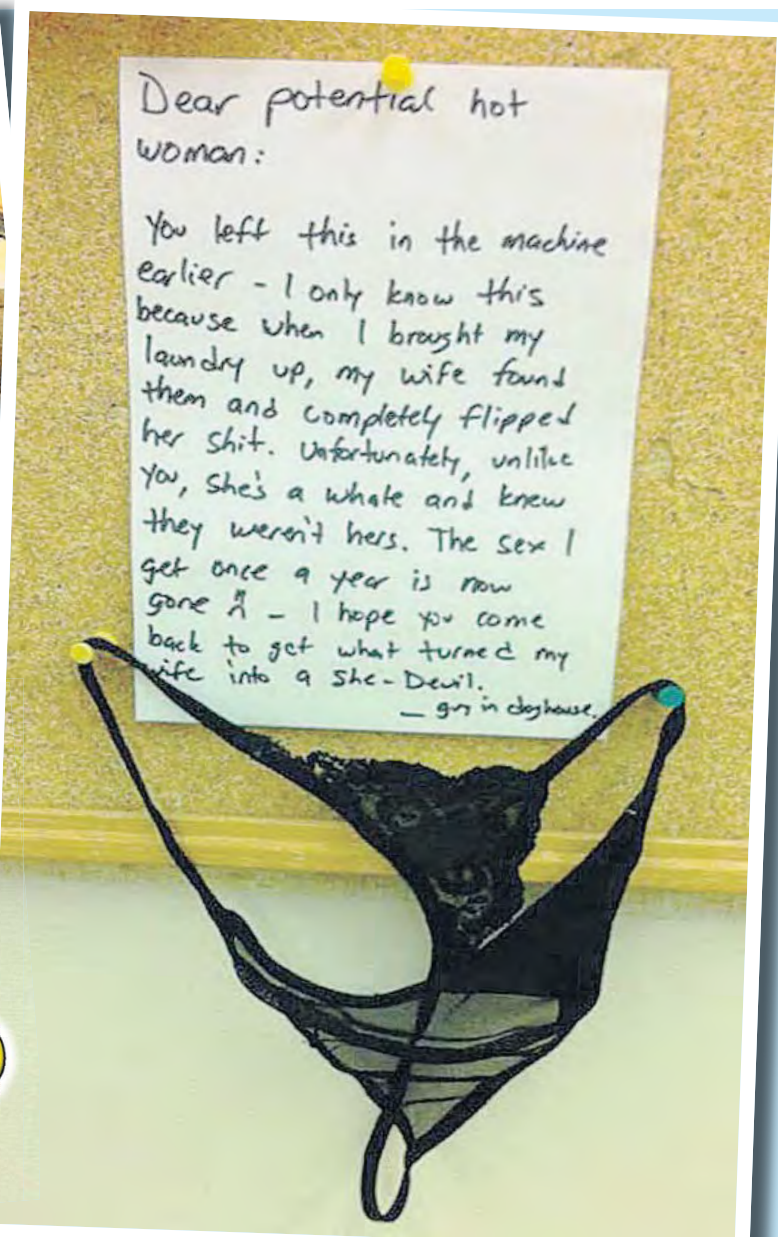 Dear potential hot
woman:
You left this in the machine
earlier - I only know this
because when I brought my
laundry up, my wife found
them and completely flipped
her shit. Unfortunately, unlike
you, she's a whale and knew
they weren't hers. The sex I
get once a year is now
gone - I hope you come
back to get what turned my
wife into a She-Devil.
- guy in doghouse.